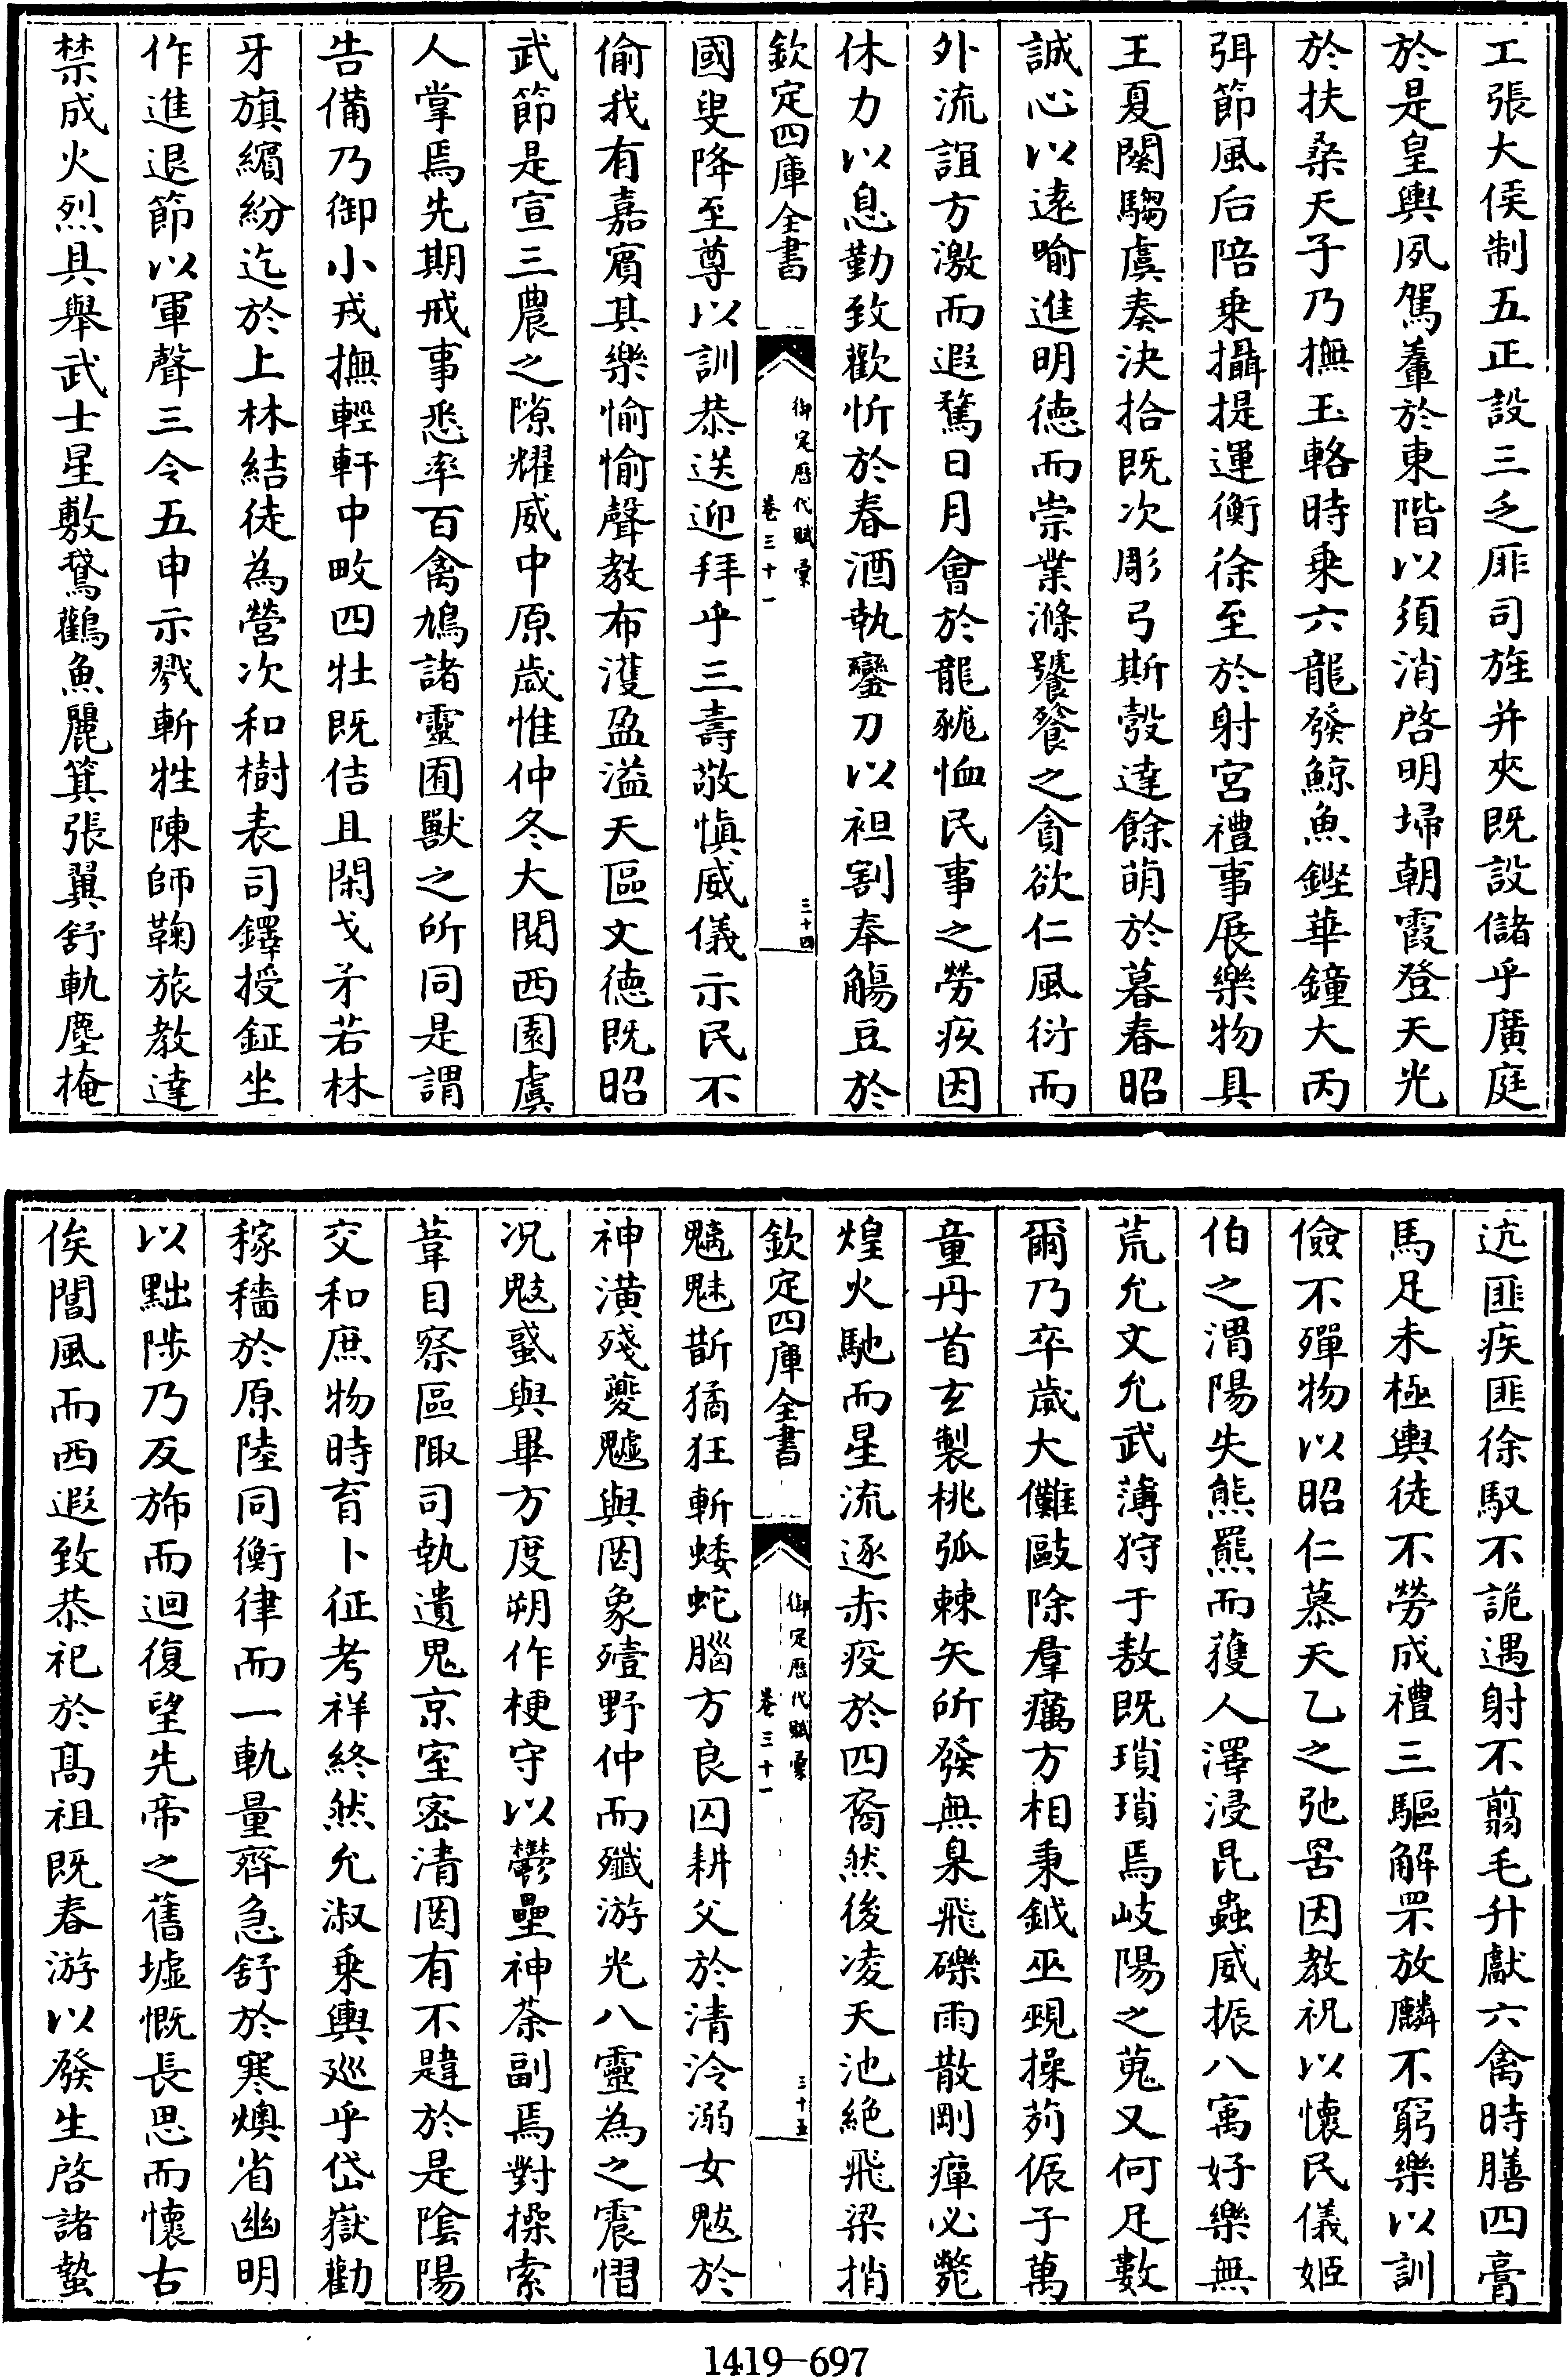 工張大侯制五正設三乏厞司旌并夾既設儲乎廣庭
於是皇輿夙駕輦於東階以須消啓明埽朝霞登天光
於扶桑天子乃撫玉輅時乗六龍發鯨魚鏗華鐘大丙
弭節風后陪乗攝提運衡徐至於射宮禮事展樂物具
王夏闋騶虞奏決拾既次彫弓斯彀達餘萌於暮春昭
誠心以遠喻進明徳而崇業滌饕餮之貪欲仁風衍而
外流誼方激而遐騖日月會於龍狵恤民事之勞疚因
休力以息勤致歡忻於春酒執鑾刀以袒割奉觴豆於
欽定四庫全書
御定歴代賦彙
卷三十一
三十四
國叟降至尊以訓恭送迎拜乎三壽敬慎威儀示民不
偷我有嘉賔其樂愉愉聲教布濩盈溢天區文德既昭
武節是宣三農之隙耀威中原歲惟仲冬大閱西園虞
人掌焉先期戒事悉率百禽鳩諸靈囿獸之所同是謂
告備乃御小戎撫輕軒中畋四牡既佶且閑戈矛若林
牙旗繽紛迄於上林結徒為營次和樹表司鐸授鉦坐
作進退節以軍聲三令五申示戮斬牲陳師鞠旅教達
禁成火烈具舉武士星敷鵞鸛魚麗箕張翼舒軌塵掩
迒匪疾匪徐馭不詭遇射不翦毛升獻六禽時膳四膏
馬足未極輿徒不勞成禮三驅解罘放麟不窮樂以訓
儉不殫物以昭仁慕天乙之弛罟因教祝以懷民儀姬
伯之渭陽失熊羆而獲人澤浸昆蟲威振八寓好樂無
荒允文允武薄狩于敖既瑣瑣焉岐陽之蒐又何足數
爾乃卒歲大儺毆除羣癘方相秉鉞巫覡操茢侲子萬
童丹首玄製桃弧棘矢所發無臬飛礫雨散剛癉必斃
煌火馳而星流逐赤疫於四裔然後凌天池絶飛梁捎
欽定四庫全書
御定歴代賦彙
卷三十一
三十五
魑魅斮獝狂斬蜲蛇腦方良囚耕父於清泠溺女魃於
神潢殘夔魖與罔象殪野仲而殲游光八靈為之震慴
况鬾蜮與畢方度朔作梗守以鬱壘神荼副焉對操索
葦目察區陬司執遺鬼京室宻清罔有不韙於是隂陽
交和庶物時育卜征考祥終然允淑乗輿廵乎岱嶽勸
稼穡於原陸同衡律而一軌量齊急舒於寒燠省幽明
以黜陟乃反斾而迴復望先帝之舊墟慨長思而懷古
俟閶風而西遐致恭祀於髙祖既春游以發生啓諸蟄
1419-697